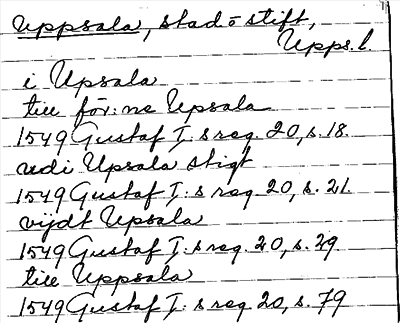 Uppsala, stad o stift,
Upps. l.
i Upsala
till för:ne Upsala
1549 Gustaf I:s reg. 20, s. 18.
udi Upsala stigt
1549 Gustaf I:s reg. 20, s. 21.
vijdt Upsala
1549 Gustaf I:s reg. 20, s. 29
till Uppsala
1549 Gustaf I:s reg. 20, s. 79